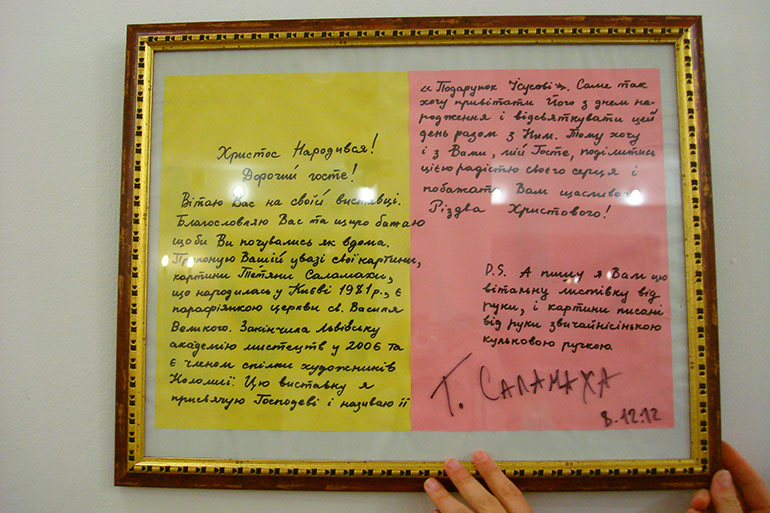 Христос Народився!
Дорогий госте!
Вітаю Вас на своїй виставці.
Благословляю Вас та щиро бажаю
щоби Ви почувались як вдома.
Пропоную Вашій увазі свої картини,
картини Тетяни Саламахи,
що народилась у Києві 1981р., є
парафіянкою церкви св. Василя
Великого. Закінчила львівську
академію мистецтв у 2006 та
є членом спілки художників
Коломиї. Цю виставку я
присвячую Господеві і називаю її
«Подарунок Ісусові». Саме так
хочу привітати Його з днем на-
родження і відсвяткувати цей
день разом з Ним. Тому хочу
і з Вами, мій Госте, поділитись
цією радістю своєго серця і
побажати Вам щасливого
Різдва Христового!
P.S. А пишу я Вам цю
вітальну листівку від
руки, і картини писані
від руки звичайнісінькою
кульковою ручкою
Т. САЛАМАХА
8.12.12